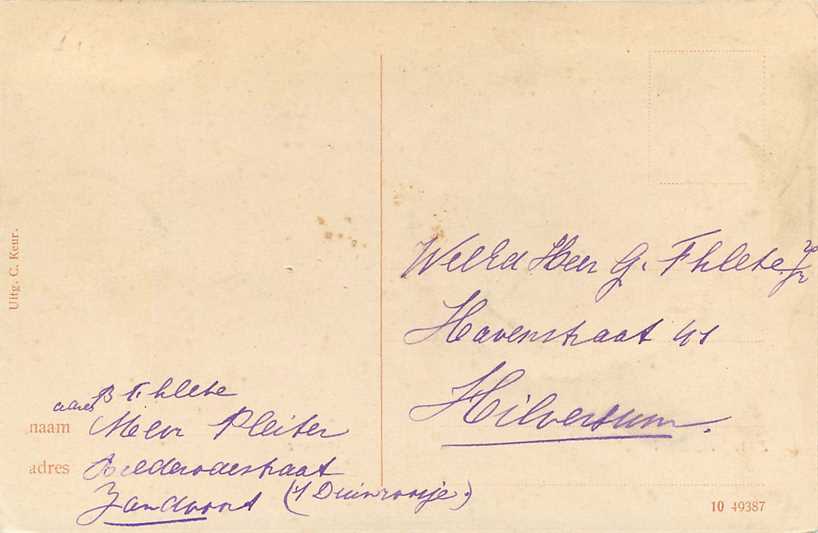 Uitg. C. Keur.
B Fhlebe
naam Mevr Pleiter
adres
Zandvoort ('t Duinroosje)
WelEd Heer G. Fhlebe Jr
Havenstraat 41
Hilversum.
10 49387